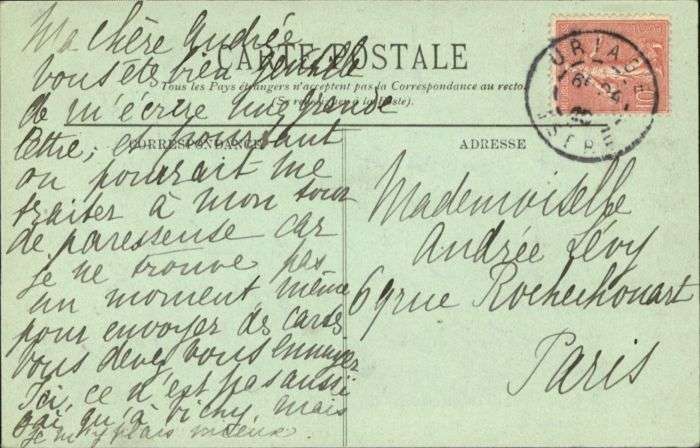 Ma chère Andrée
vous êtes bien gentille
de m'écrire une grande
lettre, et pourtant
on pourrait me
traiter à mon tour
de paresseuse car
je ne trouve pas
un moment même
pour envoyer des cartes
vous devez vous ennuyer
Ici, ce n'est pas aussi
gai qu'à Vichy, mais
je m'y plais mieux.
CARTE POSTALE
Tous les Pays étrangers n'acceptent pas la Correspondance au recto.
(Se renseigner à la Poste).
CORRESPONDANCE
ADRESSE
URIAGE
ISERE
10
Mademoiselle
Andrée Lévy
69 rue Rochechouart
Paris